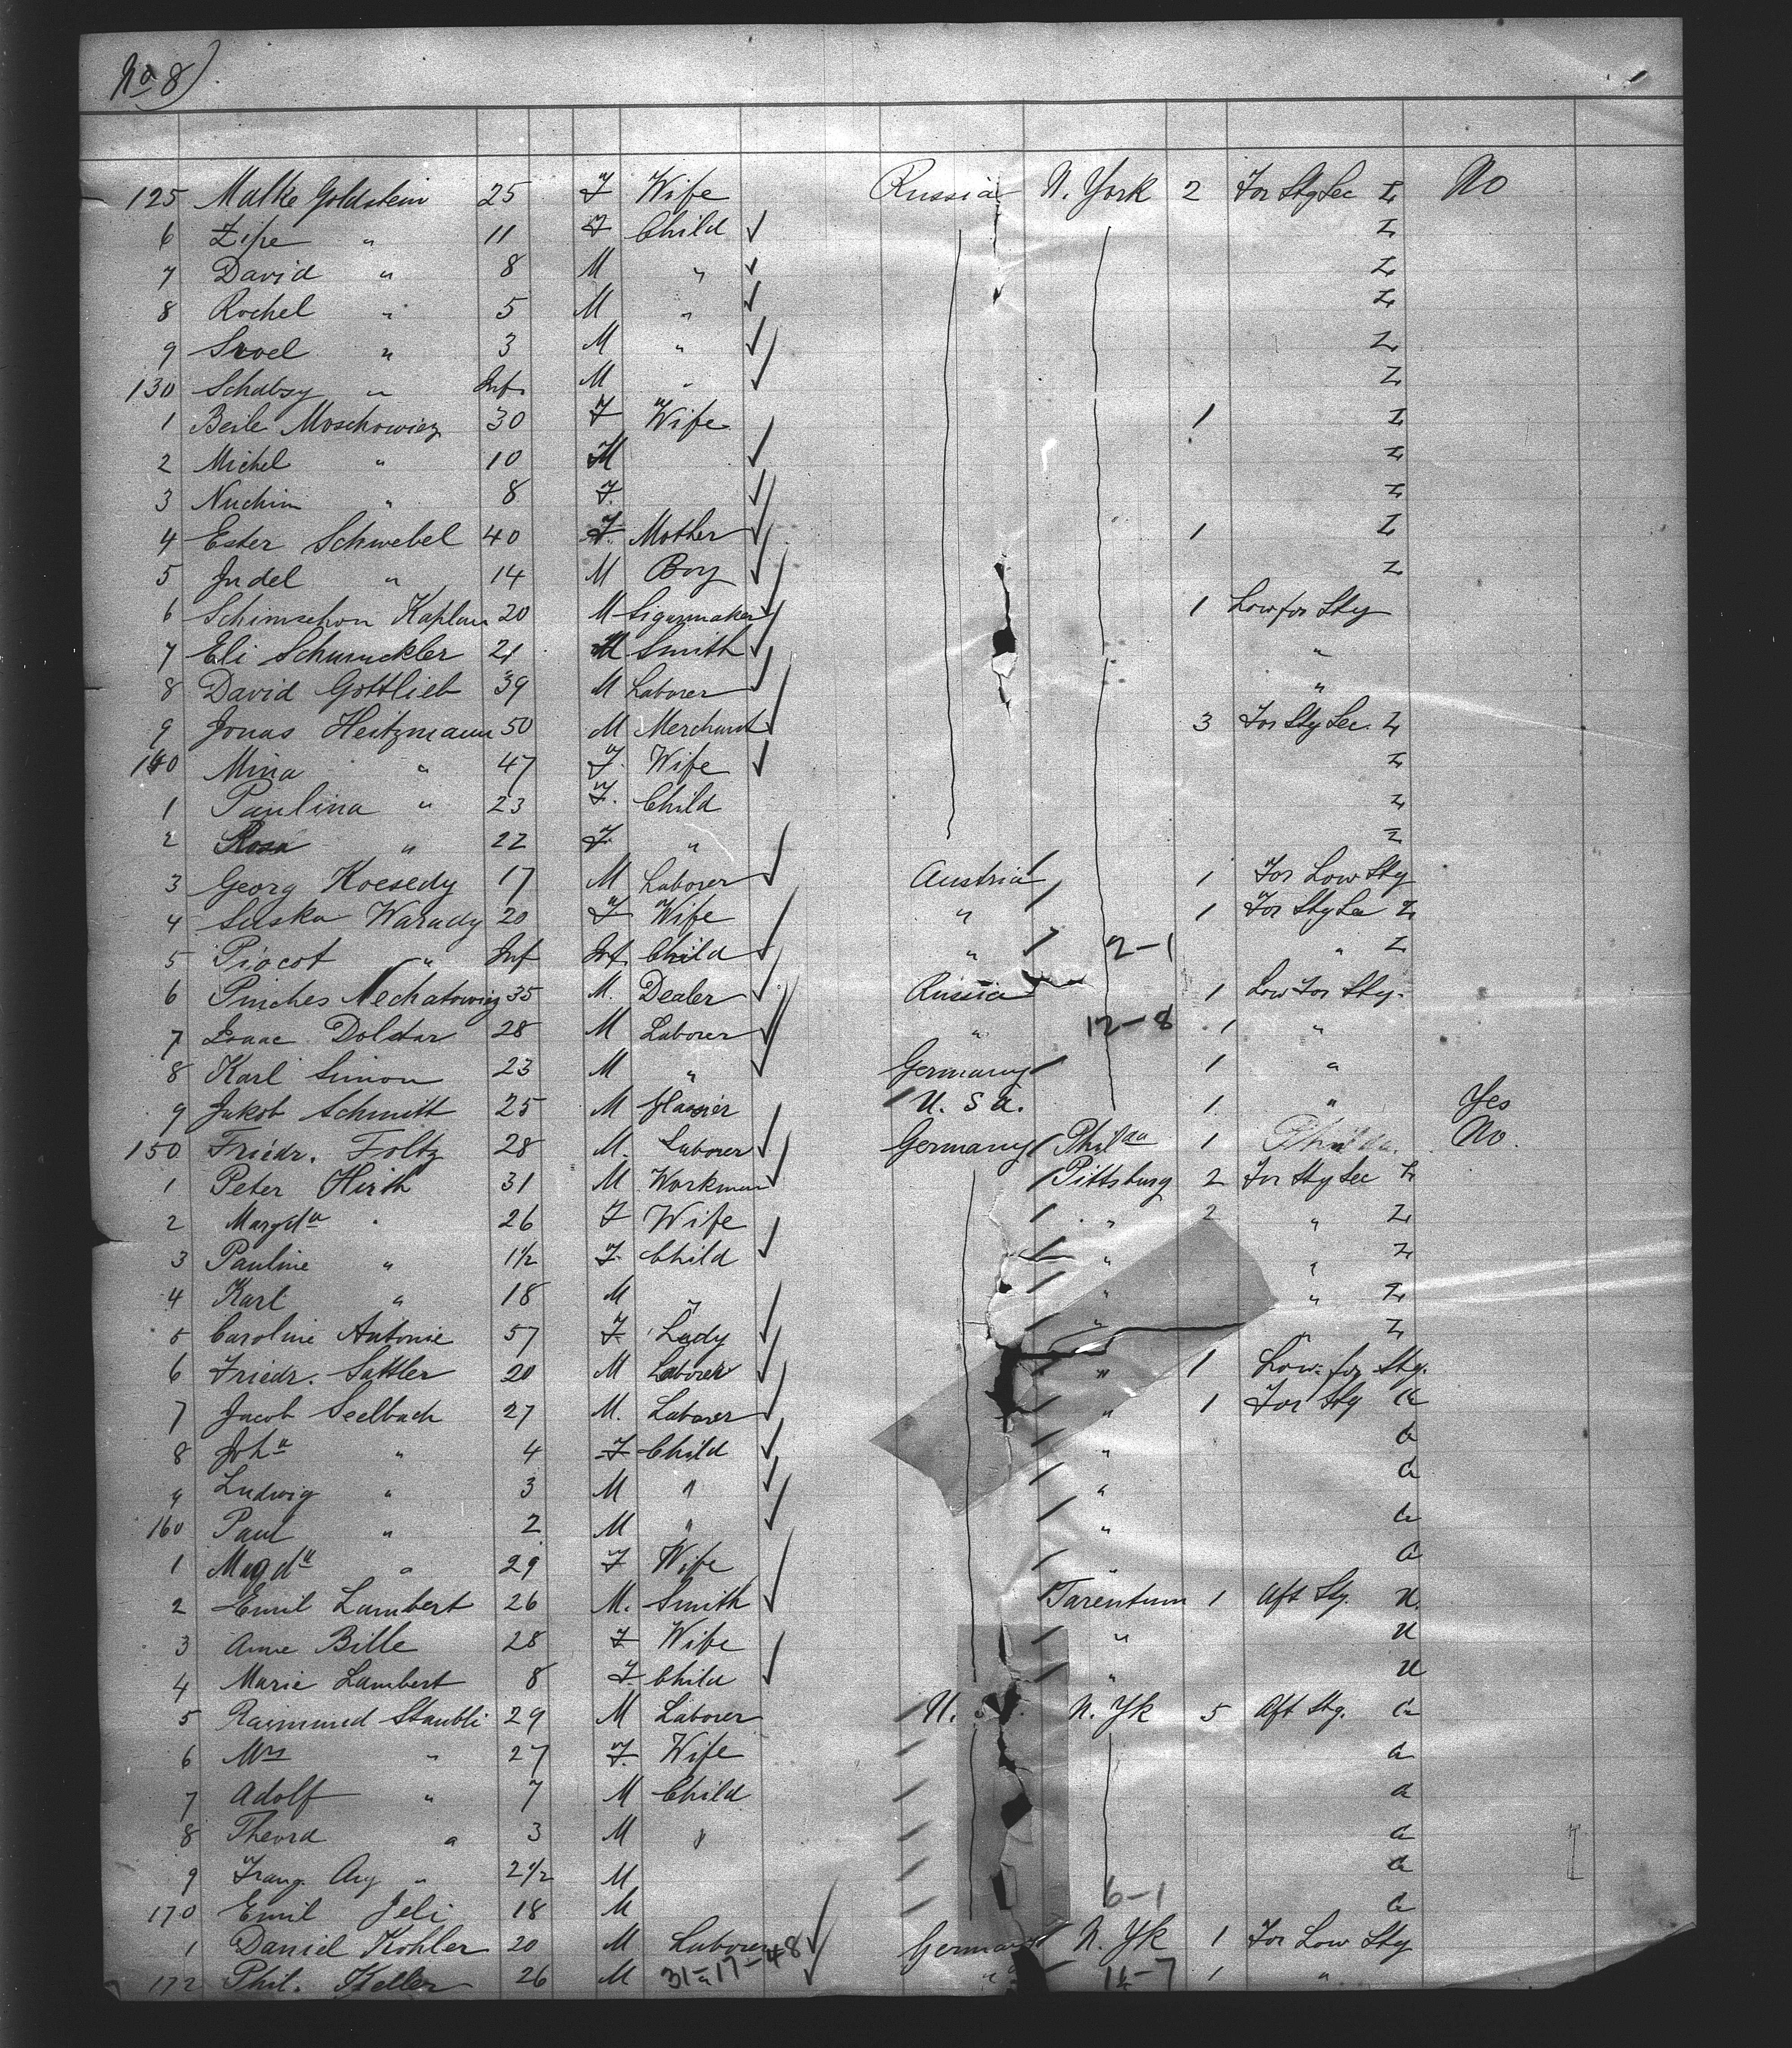 No 8)
125 Malke Goldstein 25 F Wife Russia N. York 2 For Stg Sec Z No
6 Zipe " 11 F Child Z
7 David " 8 M " Z
8 Rochel " 5 M " Z
9 Sroel " 3 M " Z
130 Schabsy " Inf. M " Z
1 Beile Moschowicz 30 F Wife 1 Z
2 Michel " 10 M Z
3 Nuchim " 8 F. Z
4 Ester Schwebel 40 F. Mother 1 Z
5 Judel " 14 M Boy Z
6 Schimschon Kaplan 20 M Sigarmaker 1 Low for Stg
7 Eli Schumckler 21 M Smith "
8 David Gottlieb 39 M Laborer "
9 Jonas Heitzmann 50 M Merchant 3 For Stg Sec. Z
140 Mina " 47 F. Wife Z
1 Paulina " 23 F. Child Z
2 Rosa " 22 F " Z
3 Georg Koesedy 17 M Laborer Austria 1 For Low Stg
4 Suska Warady 20 F Wife " 1 For Stg Sec Z
5 Piocot " Inf Inf. Child " 2-1 " Z
6 Pinches Nechatowicz 35 M. Dealer Russia 1 Low For Stg.
7 Isaac Dolstar 28 M Laborer " 12-8 1 "
8 Karl Simon 23 M " Germany 1 "
9 Jakob Schmitt 25 M Glasier U. S a. 1 " Yes
150 Friedr. Foltz 28 M. Laborer Germany Philda 1 Philda. No.
1 Peter Hirth 31 M Workman Pittsburg 2 For Stg Sec Z
2 Magda " 26 F Wife " 2 " Z
3 Pauline " 1½ F. Child " " Z
4 Karl " 18 M " " " Z
5 Caroline Antonie 57 F Lady " Z
6 Friedr. Sattler 20 M Laborer " 1 Low. for Stg.
7 Jacob Seelbach 27 M. Laborer " 1 For Stg a
8 Joha " 4 F Child " a
9 Ludwig " 3 M " " a
160 Paul " 2 M " " a
1 Magda " 29 F Wife a
2 Emil Lambert 26 M. Smith Tarentum 1 Aft Stg. U.
3 Anne Bille 28 F Wife " U
4 Marie Lambert 8 F. Child " U
5 Raymund Staubli 29 M Laborer U. S. N. Yk 5 Aft Stg. a
6 Mrs " 27 F. Wife a
7 Adolf " 7 M Child a
8 Theord " 3 M " a
9 Franz. Ary " 2½ M a
170 Emil Jeli 18 M 6-1 a
1 Daniel Kohler 20 M Laborer Germany N. Yk 1 For Low Stg
172 Phil. Keller 26 M " 31-17-48 " 1 "